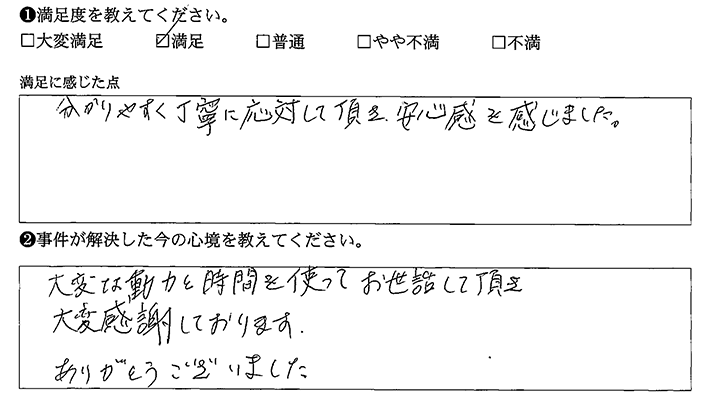 ❶満足度を教えてください。
□大変満足 ☑満足 □普通 □やや不満 □不満
満足に感じた点
分かりやすく丁寧に応対して頂き、安心感を感じました。
❷事件が解決した今の心境を教えてください。
大変な動力と時間を使ってお世話して頂き
大変感謝しております.
ありがとうございました